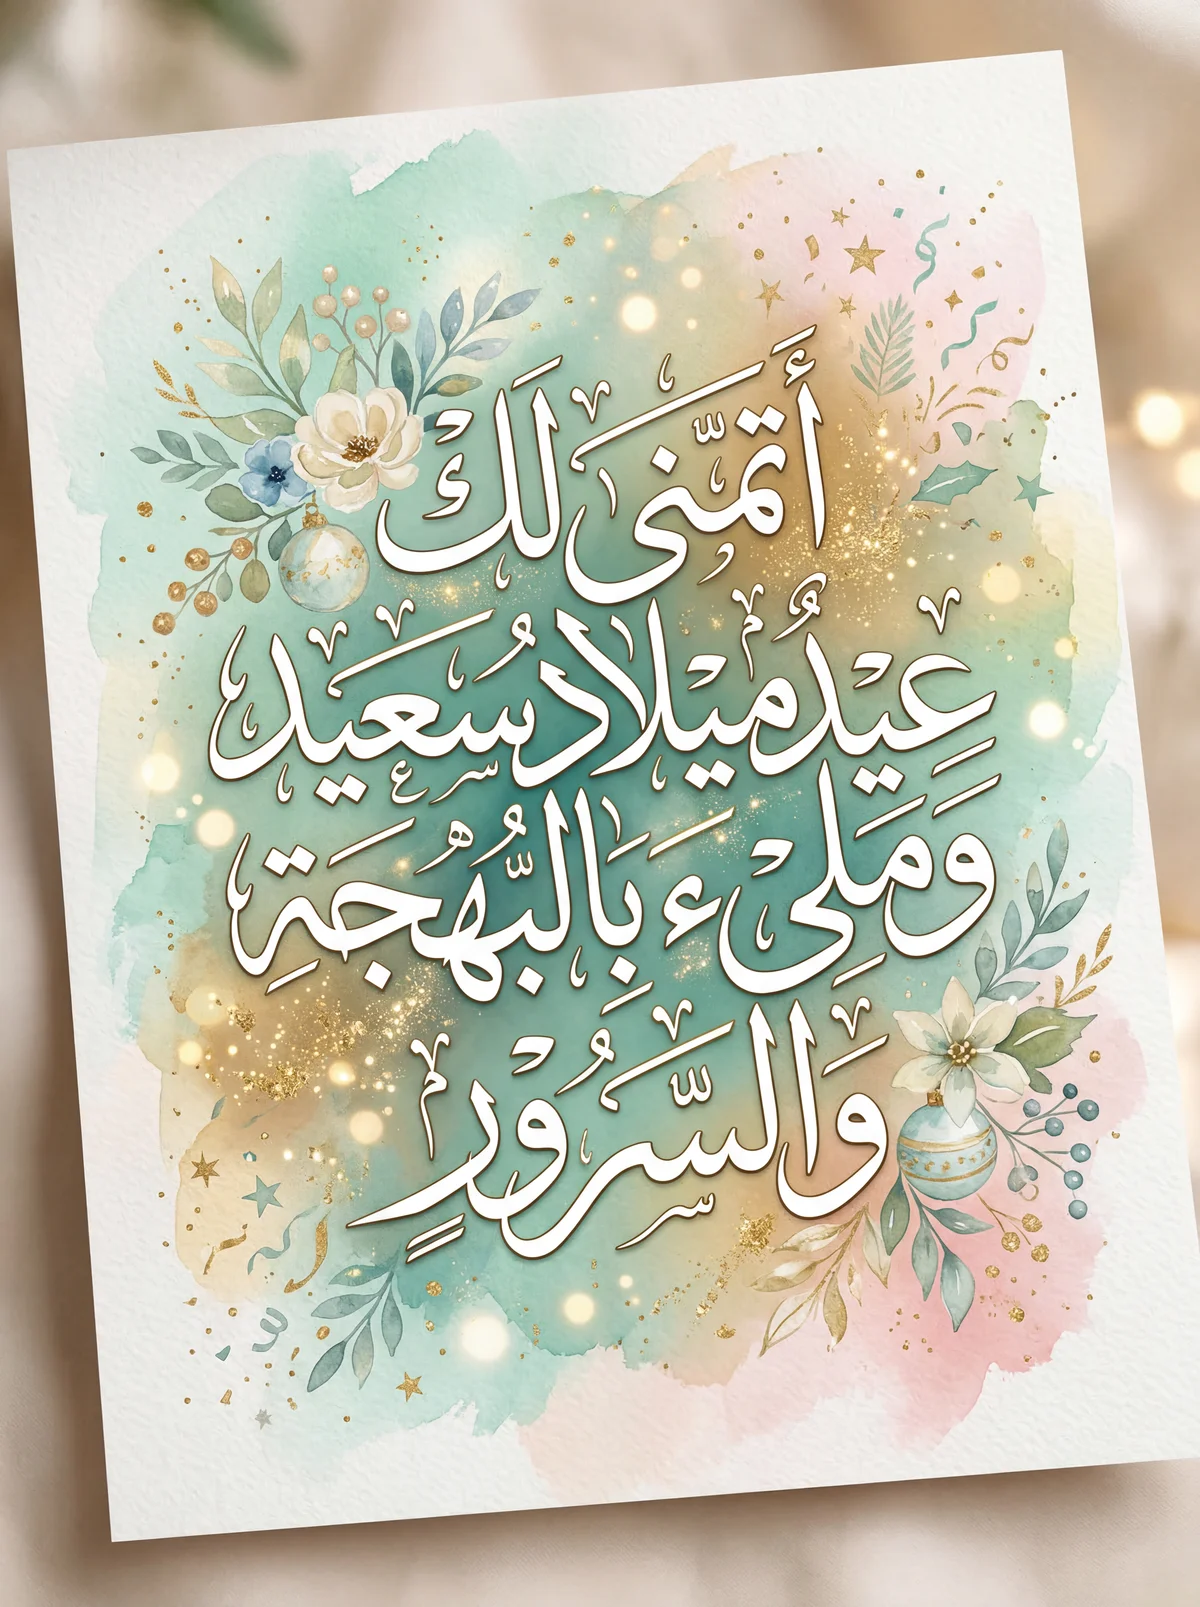 أَتمَّنى لَكْ
عِيْدُ ميْلاد سُعَيد
وَمَلِىْء بَِالبُّهْجَةِ
وَالسَّرُوْرٍ